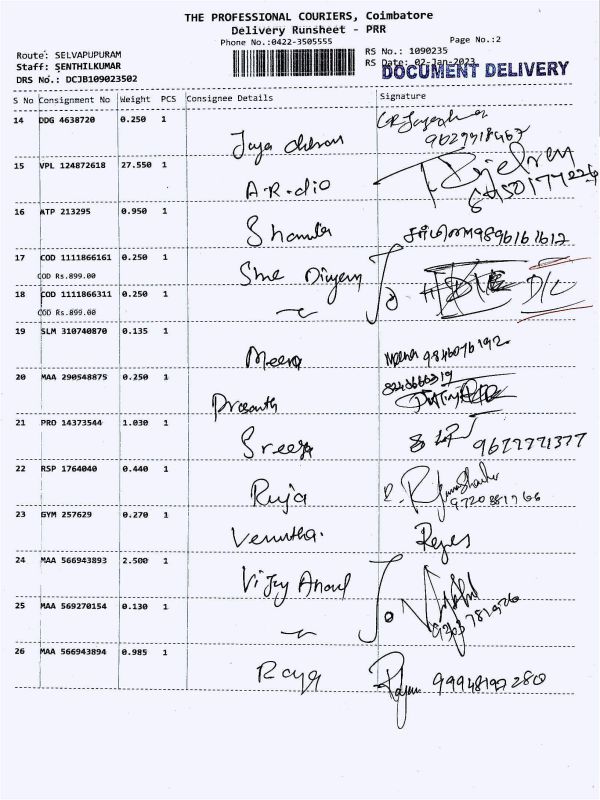 THE PROFESSIONAL COURIERS, Coimbatore
Delivery Runsheet - PRR
Phone No.:0422-3505555
Page No.:2
Route: SELVAPUPURAM
RS No.: 1090235
Staff: SENTHILKUMAR
RS Date: 02-Jan-2023
DRS No.: DCJB109023502
DOCUMENT DELIVERY
S No Consignment No Weight PCS Consignee Details Signature
14 DDG 4638720 0.250 1
15 VPL 124872618 27.550 1
A.R.dio
16 ATP 213295 0.950 1
9896161612
17 COD 1111866161 0.250 1
COD Rs.899.00
18 COD 1111866311 0.250 1
D/L
COD Rs.899.00
19 SLM 310740870 0.135 1
Meena Meena 9846076192
20 MAA 290548875 0.250 1
Prasanth
21 PRO 14373544 1.030 1
Sreeja 9677771377
22 RSP 1764040 0.440 1
Ruja
23 GYM 257629 0.270 1
24 MAA 566943893 2.500 1
Vijay Anand
25 MAA 569270154 0.130 1
26 MAA 566943894 0.985 1
Raya